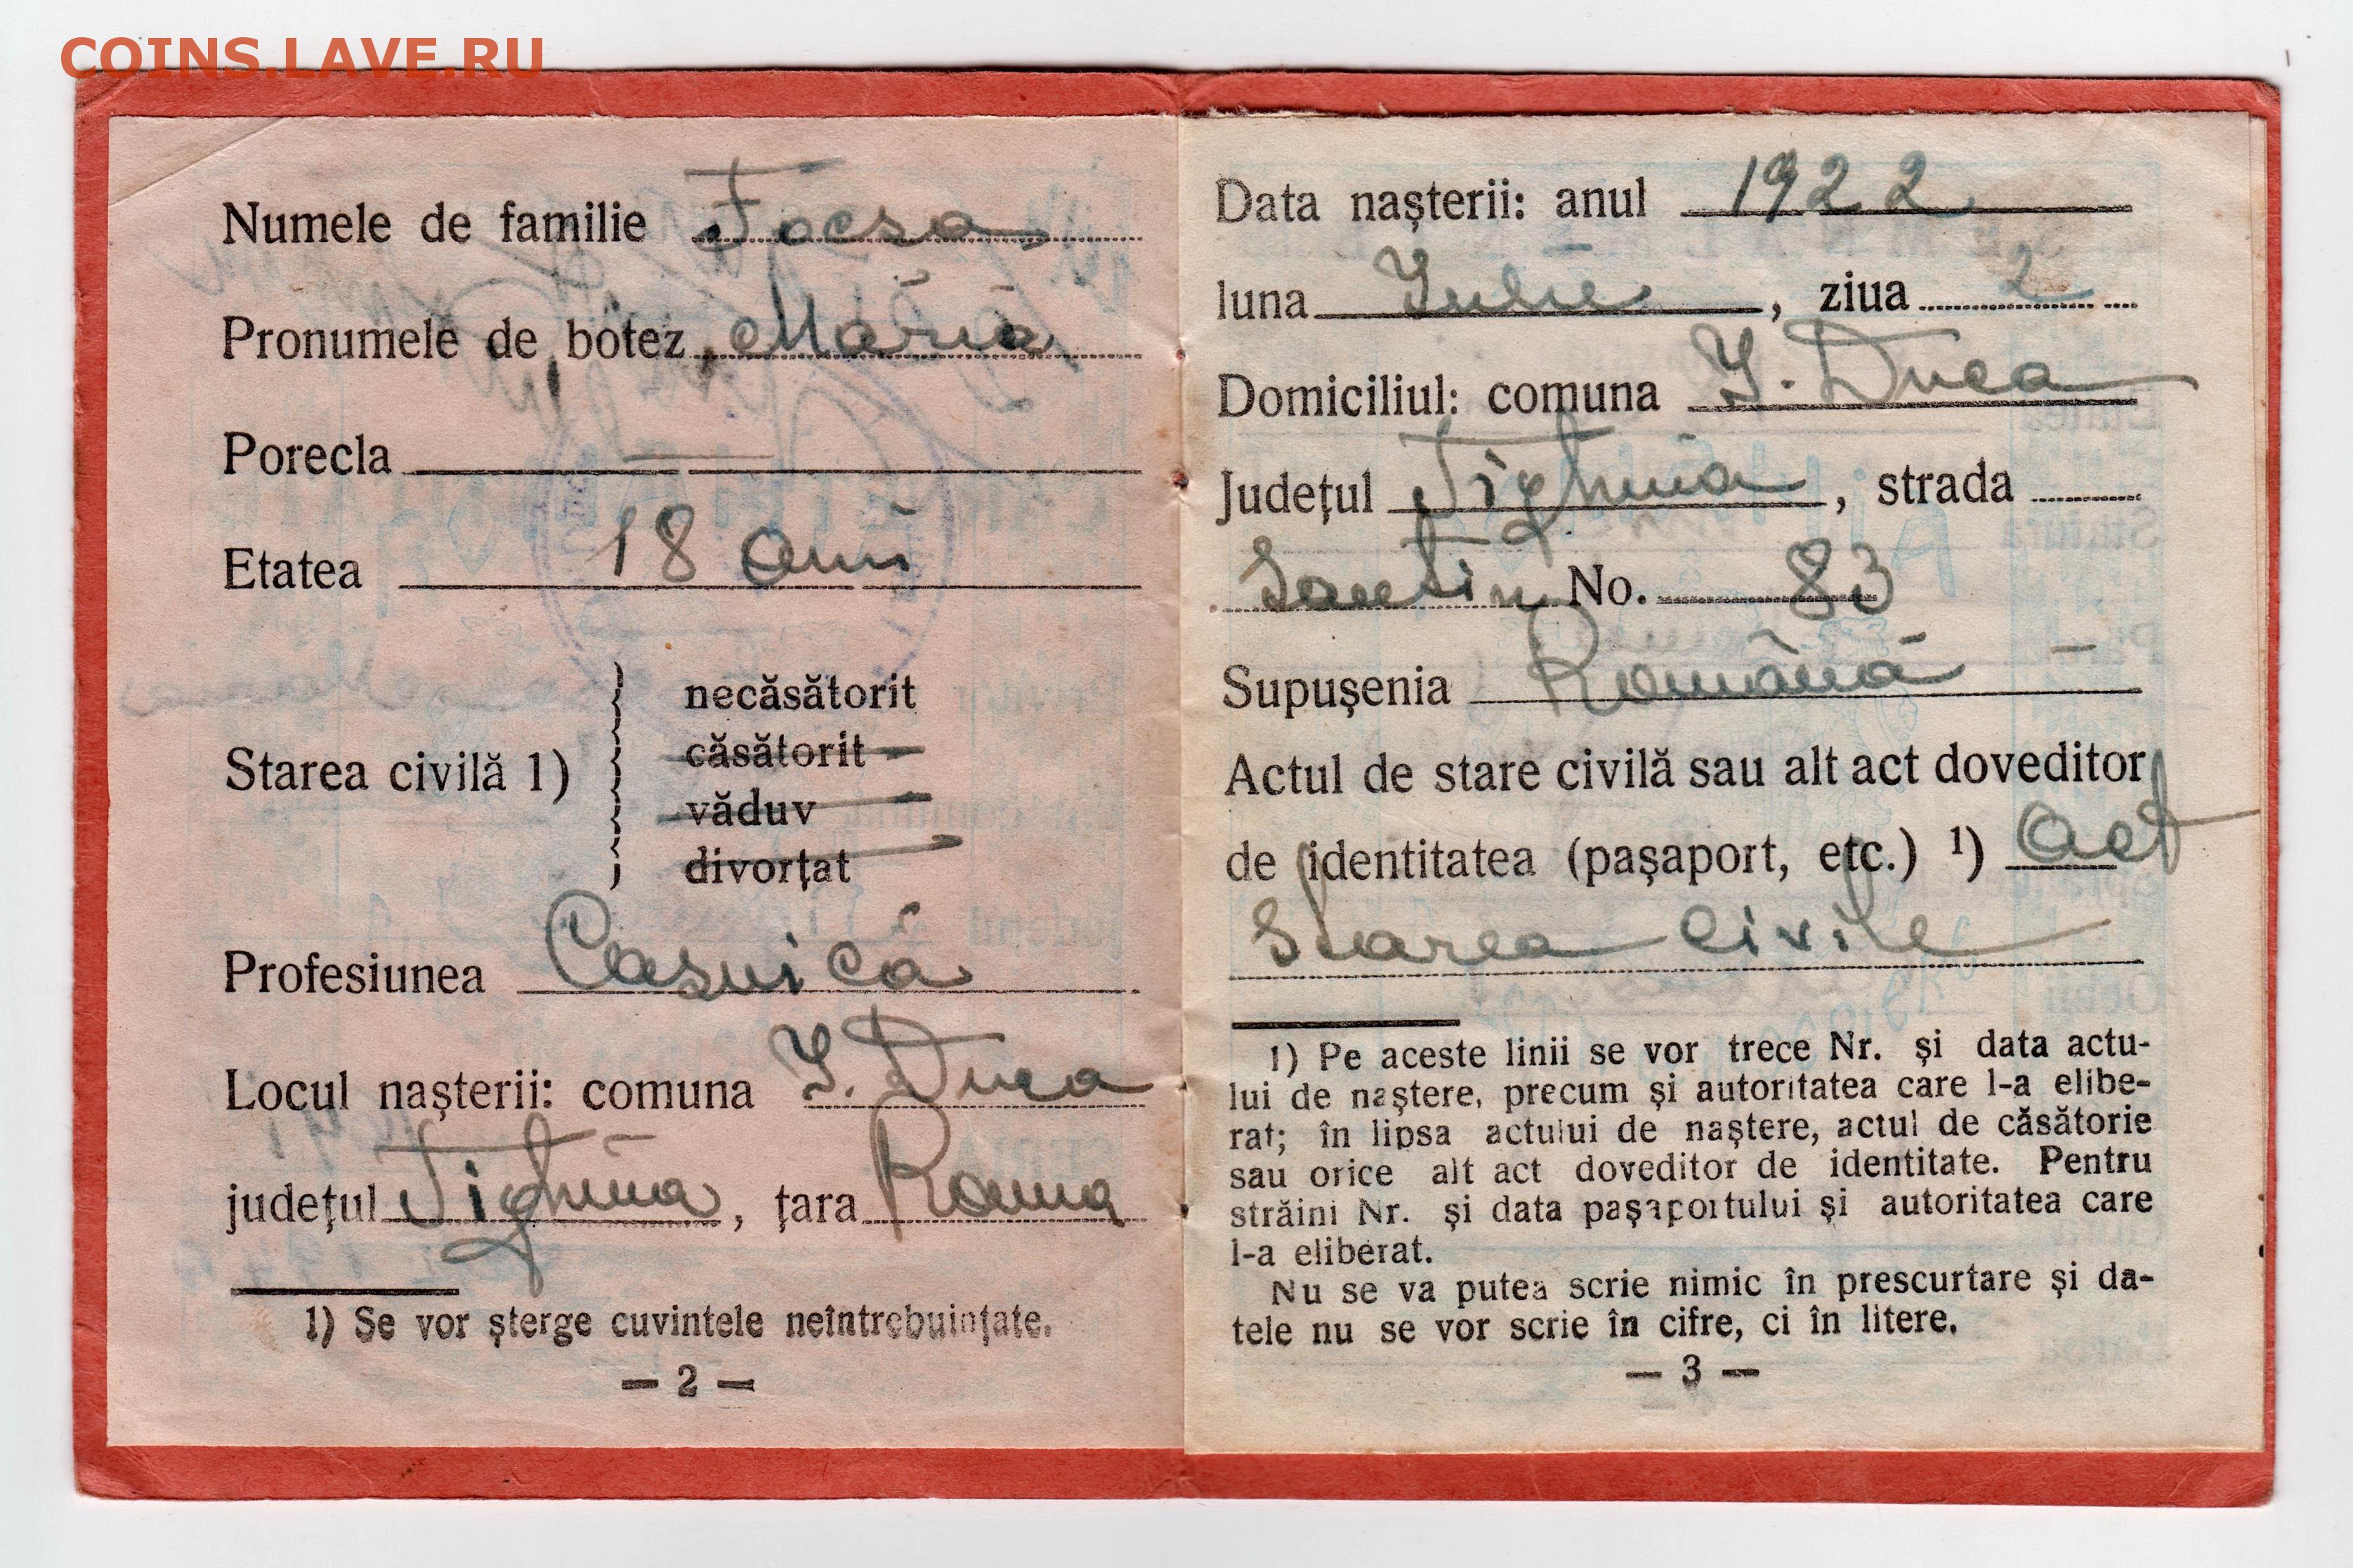 COINS.LAVE.RU
Numele de familie Focsa
Pronumele de botez Maria
Porecla —
Etatea 18 ani
necăsătorit
căsătorit
Starea civilă 1)
văduv
divorțat
Profesiunea Casnică
Locul nașterii: comuna I. Duca
județul Tighina, țara Româna
1) Se vor șterge cuvintele neîntrebuințate.
— 2 —
Data nașterii: anul 1922
luna Iulie, ziua 2
Domiciliul: comuna I. Duca
Județul Tighina, strada
No. 83
Supușenia Română
Actul de stare civilă sau alt act doveditor
de identitatea (pașaport, etc.) ¹) act
Starea civile
1) Pe aceste linii se vor trece Nr. și data actu-
lui de naștere, precum și autoritatea care l-a elibe-
rat; în lipsa actului de naștere, actul de căsătorie
sau orice alt act doveditor de identitate. Pentru
străini Nr. și data pașaportului și autoritatea care
l-a eliberat.
Nu se va putea scrie nimic în prescurtare și da-
tele nu se vor scrie în cifre, ci în litere.
— 3 —